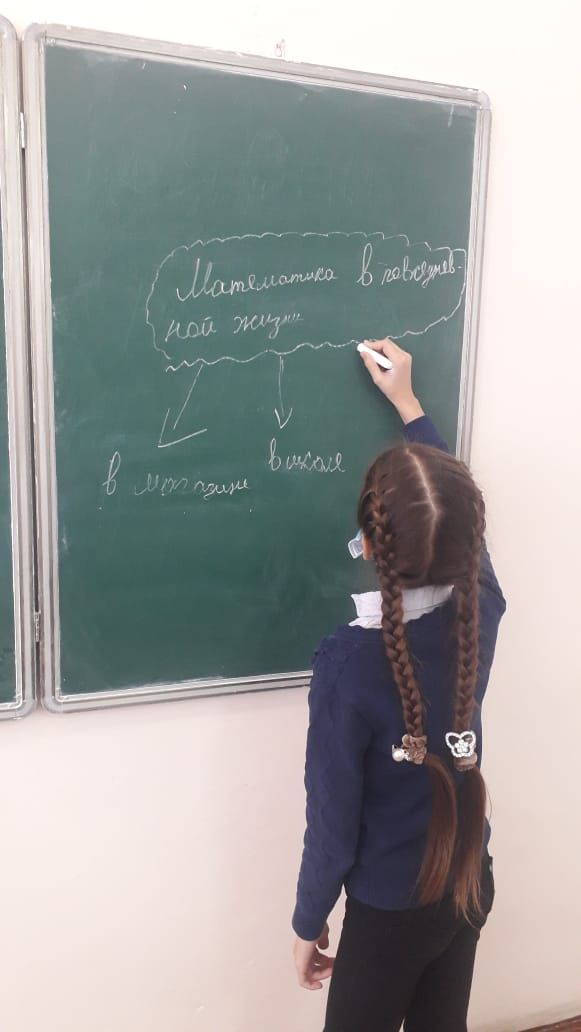 Математика в повседнев-
ной жизни
в магазине
в школе